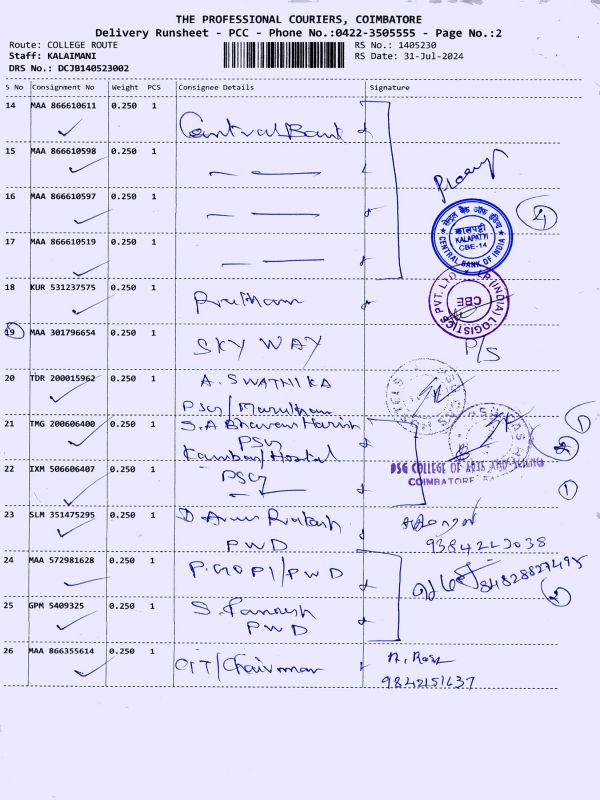 THE PROFESSIONAL COURIERS, COIMBATORE
Delivery Runsheet - PCC - Phone No.:0422-3505555 - Page No.:2
Route: COLLEGE ROUTE
RS No.: 1405230
Staff: KALAIMANI
RS Date: 31-Jul-2024
DRS No.: DCJB140523002
S No Consignment No Weight PCS Consignee Details Signature
14 MAA 866610611 0.250 1 Central Bank
15 MAA 866610598 0.250 1
16 MAA 866610597 0.250 1
17 MAA 866610519 0.250 1
सेन्ट्रल बैंक ऑफ इंडिया
कालपट्टी
KALAPATTI
CBE-14
CENTRAL BANK OF INDIA
4
18 KUR 531237575 0.250 1
(INDIA) LOGISTICS PVT. LTD
CBE
19 MAA 301796654 0.250 1 SKY WAY P/S
20 TDR 200015962 0.250 1 A. SWATHIKA
PSG/Marutham
21 TMG 200606400 0.250 1 S.A Bhavan Harish
PSG
Kamban/Hostel
22 IXM 506606407 0.250 1 PSG
PSG COLLEGE OF ARTS AND SCIENCE
COIMBATORE
1
2
1
23 SLM 351475295 0.250 1 D Arun Prakash
PWD
24 MAA 572981628 0.250 1 P.GOPI/PWD
84828827495
2
25 GPM 5409325 0.250 1
PWD
26 MAA 866355614 0.250 1 OIT/Chairman
9842151637